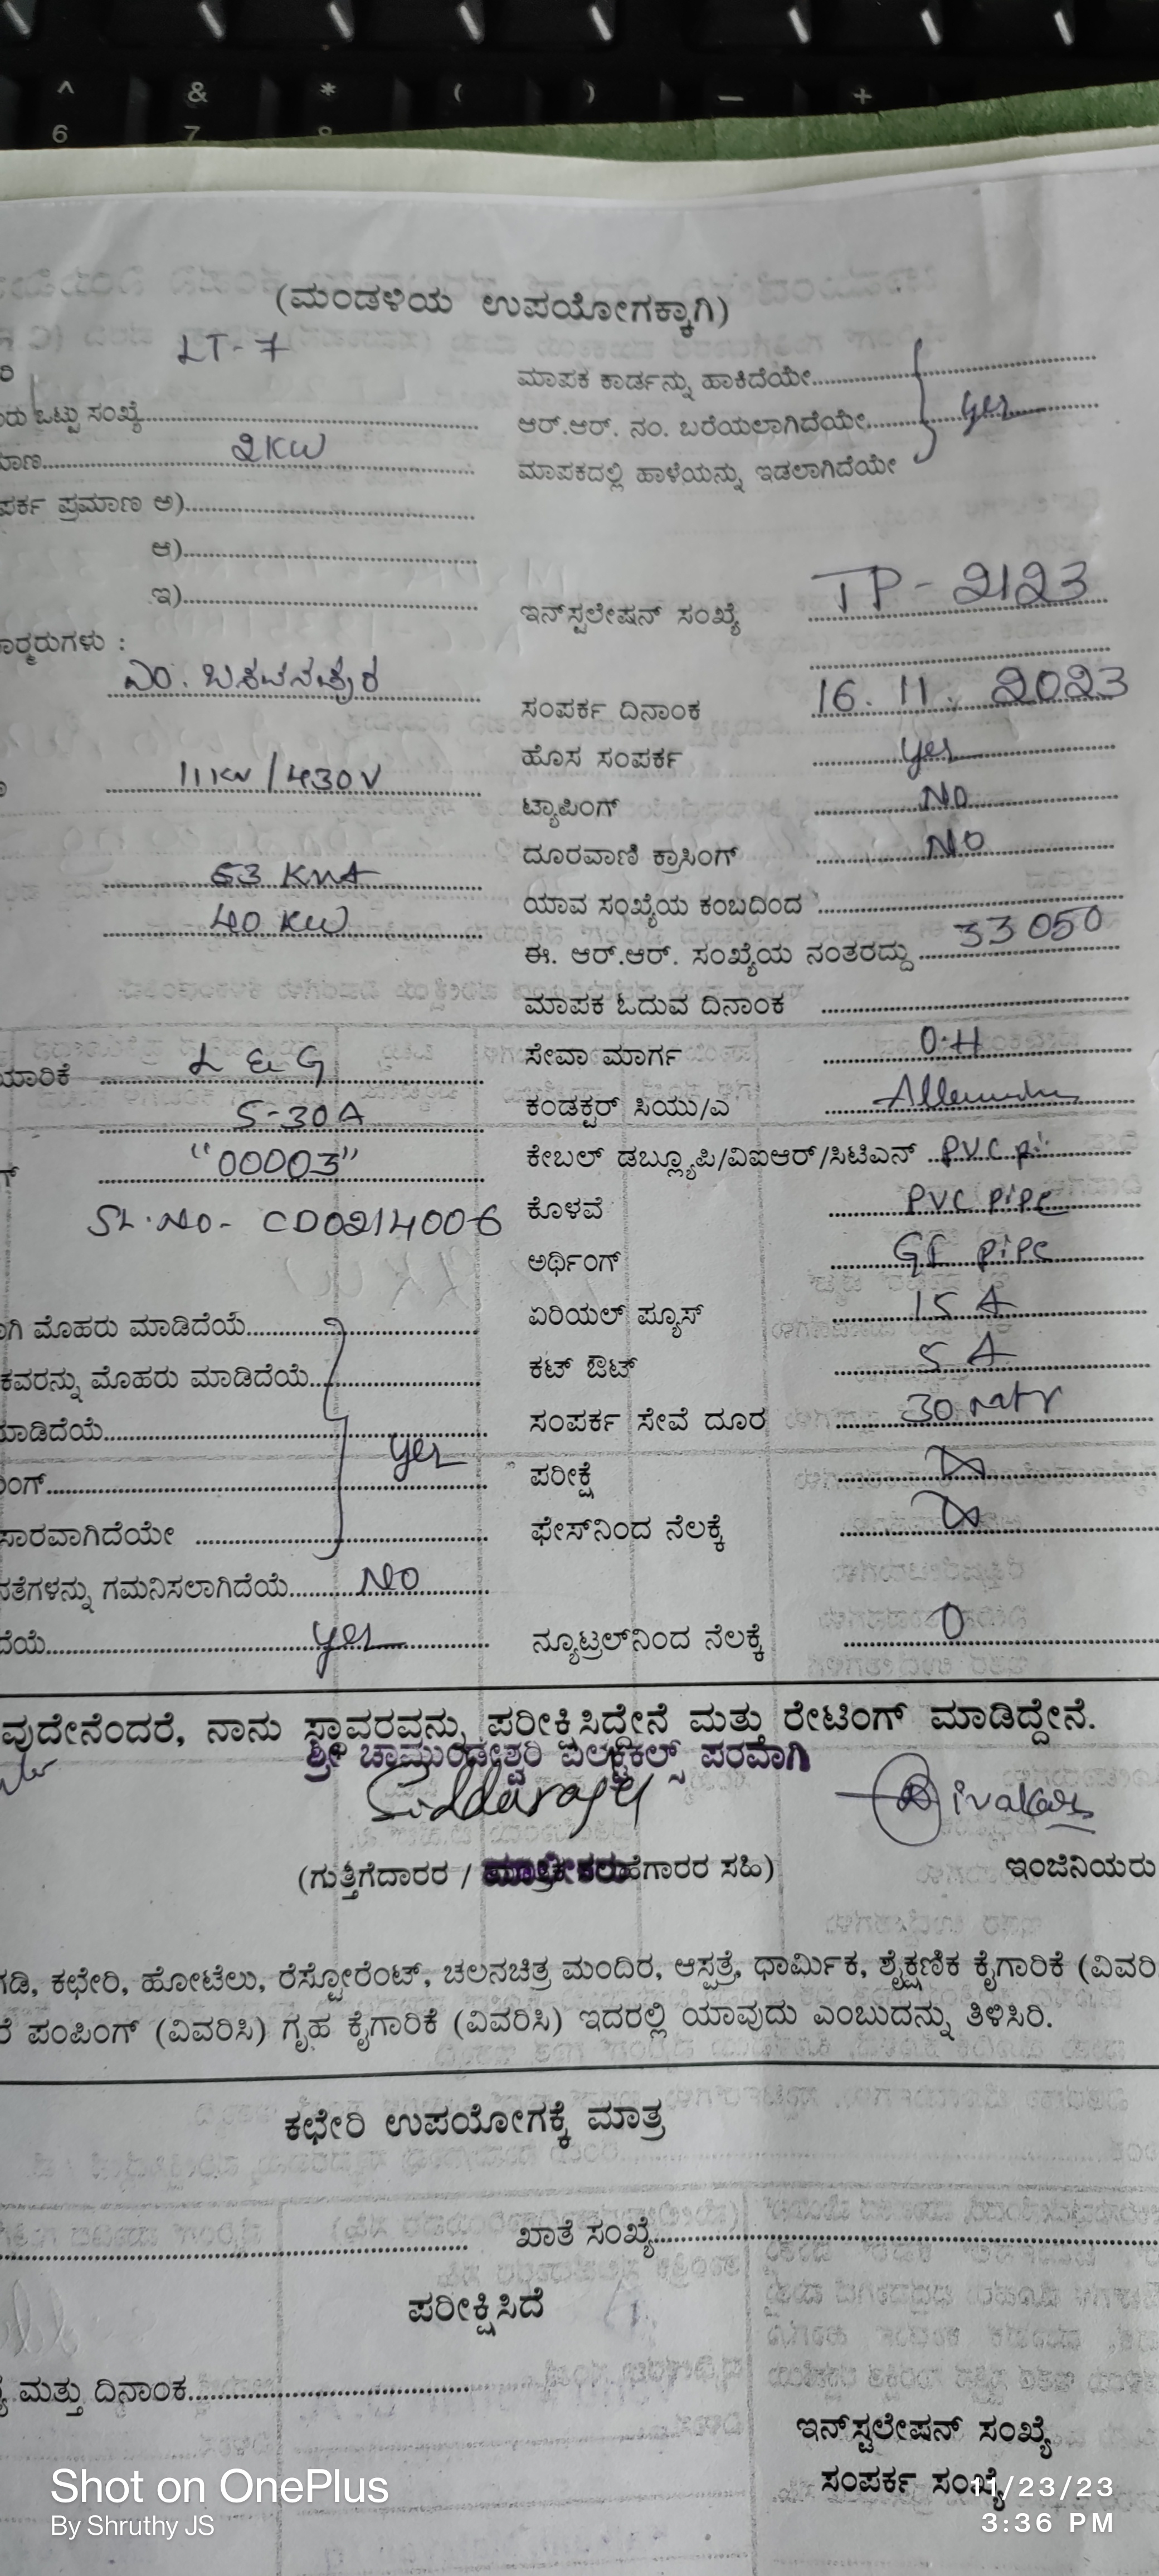 ^ & * ( ) — +
6 7 8
(ಮಂಡಳಿಯ ಉಪಯೋಗಕ್ಕಾಗಿ)
LT-7
ರಿ
ಮಾಪಕ ಕಾರ್ಡನ್ನು ಹಾಕಿದೆಯೇ
ರು ಒಟ್ಟು ಸಂಖ್ಯೆ
ಆರ್.ಆರ್. ನಂ. ಬರೆಯಲಾಗಿದೆಯೇ yes
ಮಾಣ 2KW
ಮಾಪಕದಲ್ಲಿ ಹಾಳೆಯನ್ನು ಇಡಲಾಗಿದೆಯೇ
ಪರ್ಕ ಪ್ರಮಾಣ ಅ)
ಆ)
ಇ)
ಇನ್‌ಸ್ಟಲೇಷನ್ ಸಂಖ್ಯೆ TP-2123
ಾರ್‍ಮರುಗಳು :
ಎಂ. ಬಸವನಪುರ
ಸಂಪರ್ಕ ದಿನಾಂಕ 16. 11. 2023
ಹೊಸ ಸಂಪರ್ಕ yes
11KV/430V
ಟ್ಯಾಪಿಂಗ್ NO
ದೂರವಾಣಿ ಕ್ರಾಸಿಂಗ್ NO
63 KVA
ಯಾವ ಸಂಖ್ಯೆಯ ಕಂಬದಿಂದ
40 KW
ಈ. ಆರ್.ಆರ್. ಸಂಖ್ಯೆಯ ನಂತರದ್ದು 33050
ಮಾಪಕ ಓದುವ ದಿನಾಂಕ
ಯಾರಿಕೆ L & G
ಸೇವಾ ಮಾರ್ಗ O.H
5-30A
ಕಂಡಕ್ಟರ್ ಸಿಯು/ಎ
"00003"
ಕೇಬಲ್ ಡಬ್ಲ್ಯೂಪಿ/ವಿಐಆರ್/ಸಿಟಿಎನ್ PVC
SL.NO- CD0214006
ಕೊಳವೆ PVC pipe
ಅರ್ಥಿಂಗ್ GI pipe
ಾಗಿ ಮೊಹರು ಮಾಡಿದೆಯೆ
ಏರಿಯಲ್ ಪ್ಯೂಸ್ 15 A
ಕವರನ್ನು ಮೊಹರು ಮಾಡಿದೆಯೆ
ಕಟ್ ಔಟ್ 5 A
ಮಾಡಿದೆಯೆ
ಸಂಪರ್ಕ ಸೇವೆ ದೂರ 30 mtr
ಂಗ್ yes
ಪರೀಕ್ಷೆ
ಸಾರವಾಗಿದೆಯೇ
ಫೇಸ್‌ನಿಂದ ನೆಲಕ್ಕೆ
ನತೆಗಳನ್ನು ಗಮನಿಸಲಾಗಿದೆಯೆ NO
ದೆಯೆ yes
ನ್ಯೂಟ್ರಲ್‌ನಿಂದ ನೆಲಕ್ಕೆ 0
ವುದೇನೆಂದರೆ, ನಾನು ಸ್ಥಾವರವನ್ನು ಪರೀಕ್ಷಿಸಿದ್ದೇನೆ ಮತ್ತು ರೇಟಿಂಗ್ ಮಾಡಿದ್ದೇನೆ.
ಶ್ರೀ ಚಾಮುಂಡೇಶ್ವರಿ ಎಲೆಕ್ಟ್ರಿಕಲ್ಸ್ ಪರವಾಗಿ
Siddaraju Divakar
(ಗುತ್ತಿಗೆದಾರರ / ಸಹಿ)
ಇಂಜಿನಿಯರು
ಗಡಿ, ಕಛೇರಿ, ಹೋಟೆಲು, ರೆಸ್ಟೋರೆಂಟ್, ಚಲನಚಿತ್ರ ಮಂದಿರ, ಆಸ್ಪತ್ರೆ, ಧಾರ್ಮಿಕ, ಶೈಕ್ಷಣಿಕ ಕೈಗಾರಿಕೆ (ವಿವರಿ
ರೆ ಪಂಪಿಂಗ್ (ವಿವರಿಸಿ) ಗೃಹ ಕೈಗಾರಿಕೆ (ವಿವರಿಸಿ) ಇದರಲ್ಲಿ ಯಾವುದು ಎಂಬುದನ್ನು ತಿಳಿಸಿರಿ.
ಕಛೇರಿ ಉಪಯೋಗಕ್ಕೆ ಮಾತ್ರ
ಖಾತೆ ಸಂಖ್ಯೆ
ಪರೀಕ್ಷಿಸಿದೆ
ಮತ್ತು ದಿನಾಂಕ
ಇನ್‌ಸ್ಟಲೇಷನ್ ಸಂಖ್ಯೆ
ಸಂಪರ್ಕ ಸಂಖ್ಯೆ
Shot on OnePlus
By Shruthy JS
11/23/23
3:36 PM